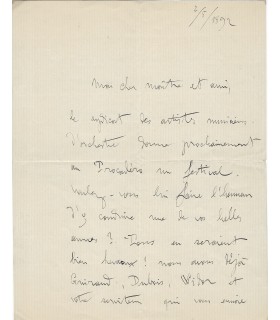 2/5/1892
Mon cher maître et ami,
Le syndicat des artistes musiciens
d'orchestre donne prochainement
au Trocadéro un festival.
Voulez-vous lui faire l'honneur
d'y conduire une de vos belles
œuvres ? Tous en seraient
bien heureux ! nous avons déjà
Guiraud, Dubois, Widor et
votre serviteur qui vous envoie